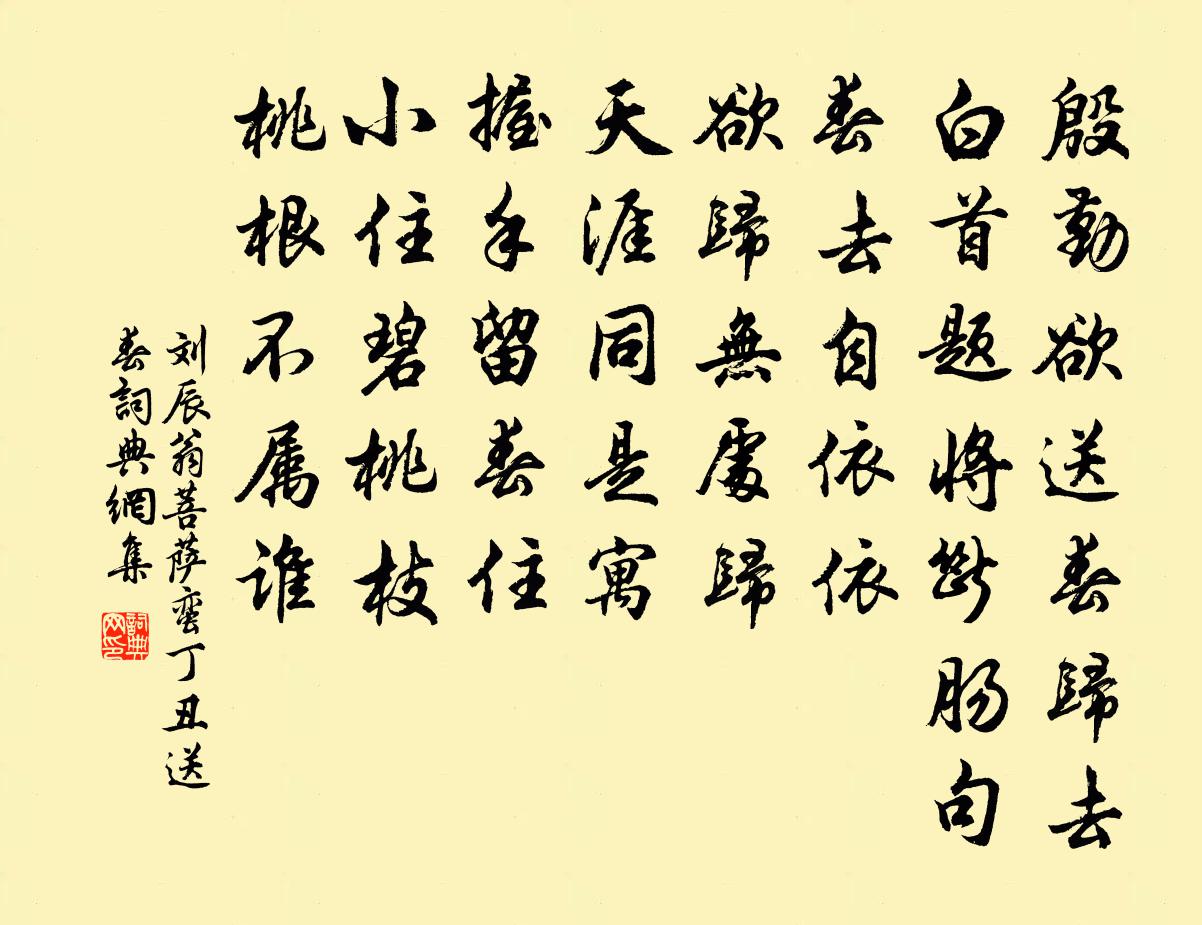 殷勤欲送春歸去
白首题將斷肠句
春去自依依
欲歸無處歸
天涯同是寓
握手留春住
小住碧桃枝
桃根不属谁
刘辰翁菩萨蛮丁丑送
春詞典網集
詞典网印